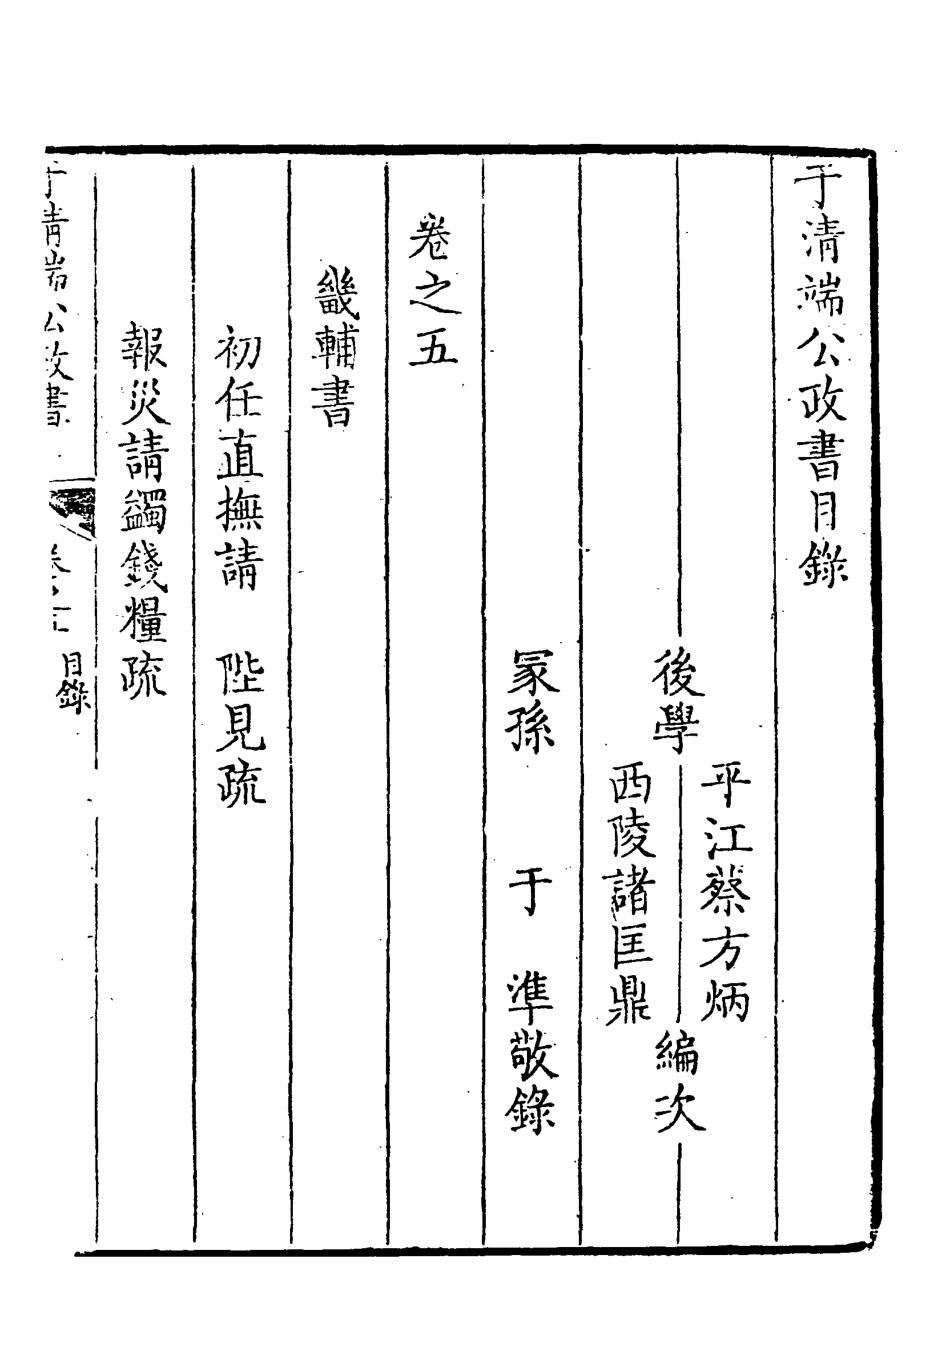 于清端公政書目錄
後學
平江蔡方炳
西陵諸匡鼎
編次
冢孫 于 準敬錄
卷之五
畿輔書
初任直撫請 陛見疏
報災請蠲錢糧疏
于清端公政書
卷之五
目錄